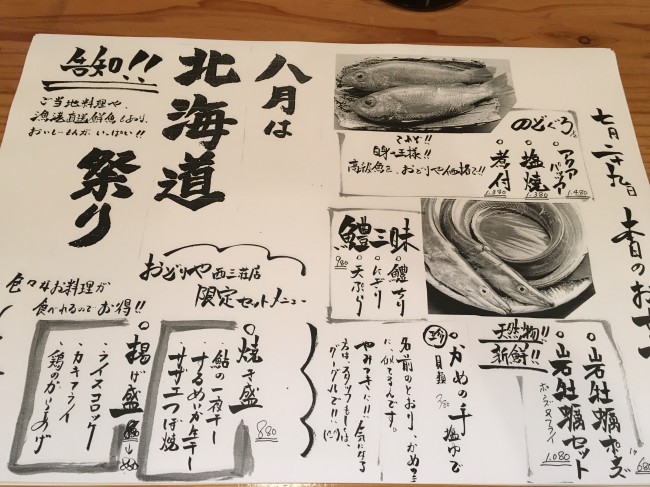 七月二十九日
本日のおす
のどぐろ
アクアパッツァ
1.480
塩焼
1.380
煮付
1.380
さすが!!
白身の王様!!
高級魚を、おどりや価格で!!
八月は
北海道
祭り
告知!!
ご当地料理や、
漁港直送鮮魚
おいしーもんが、いっぱい!!
鱧三昧
鱧ちり
にぎり
天ぷら
980
天然物!!
新鮮!!
岩牡蠣ポン酢
680
岩牡蠣セット
ポン酢・フライ
1.080
珍
かめの手 塩ゆで
貝類
780
名前のとおり、かめの手
に似てるんです。
やみつき!! 気になる
方はスタッフもしくは、
グーグルで!!
おどりや 西三荘店
限定セットメニュー
焼き盛
880
鮎の一夜干し
するめいか生干し
サザエつぼ焼
色々なお料理が
食べれるのでお得!!
揚げ盛
ライスコロッケ
カキフライ
鶏のからあげ